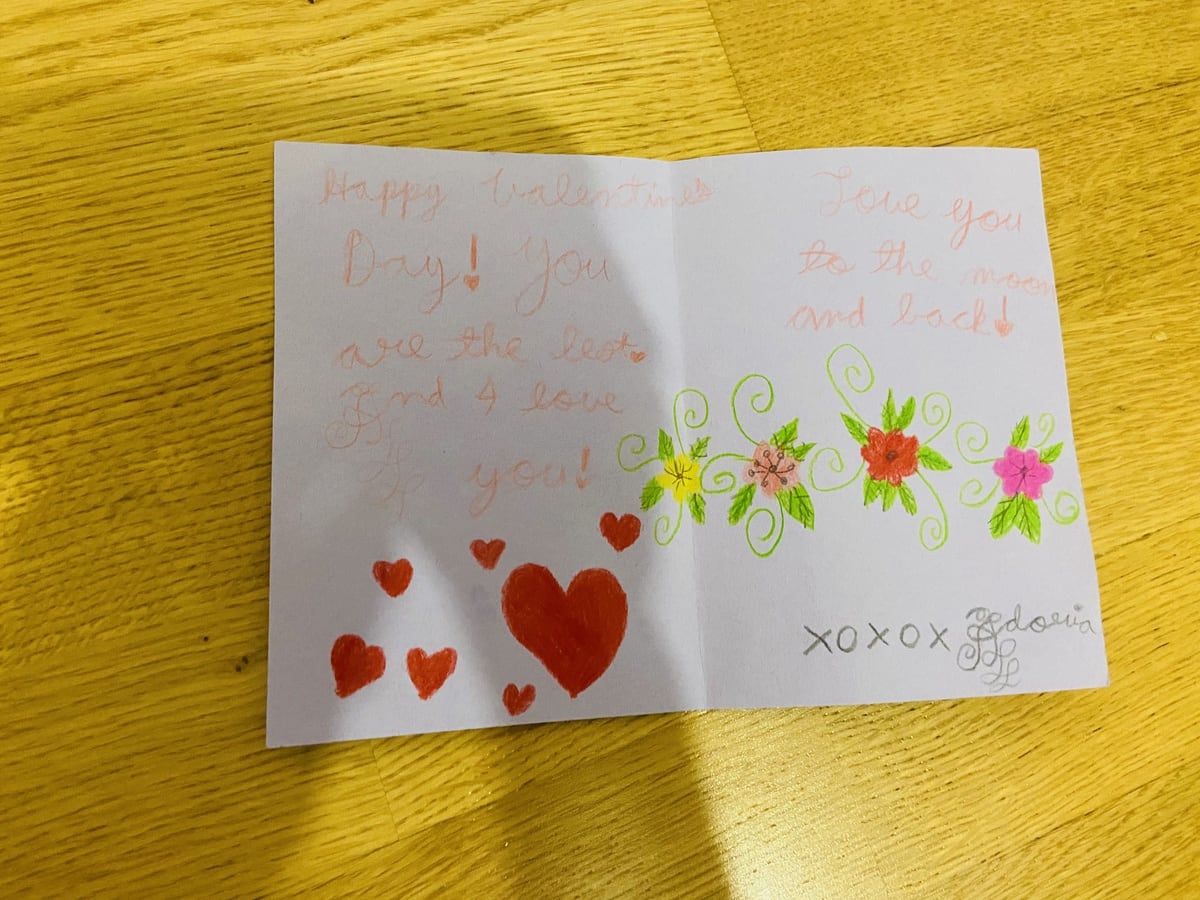 Happy Valentine's
Day! You
are the best.
And I love
you!
Love you
to the moon
and back!
XOXOX Adoria